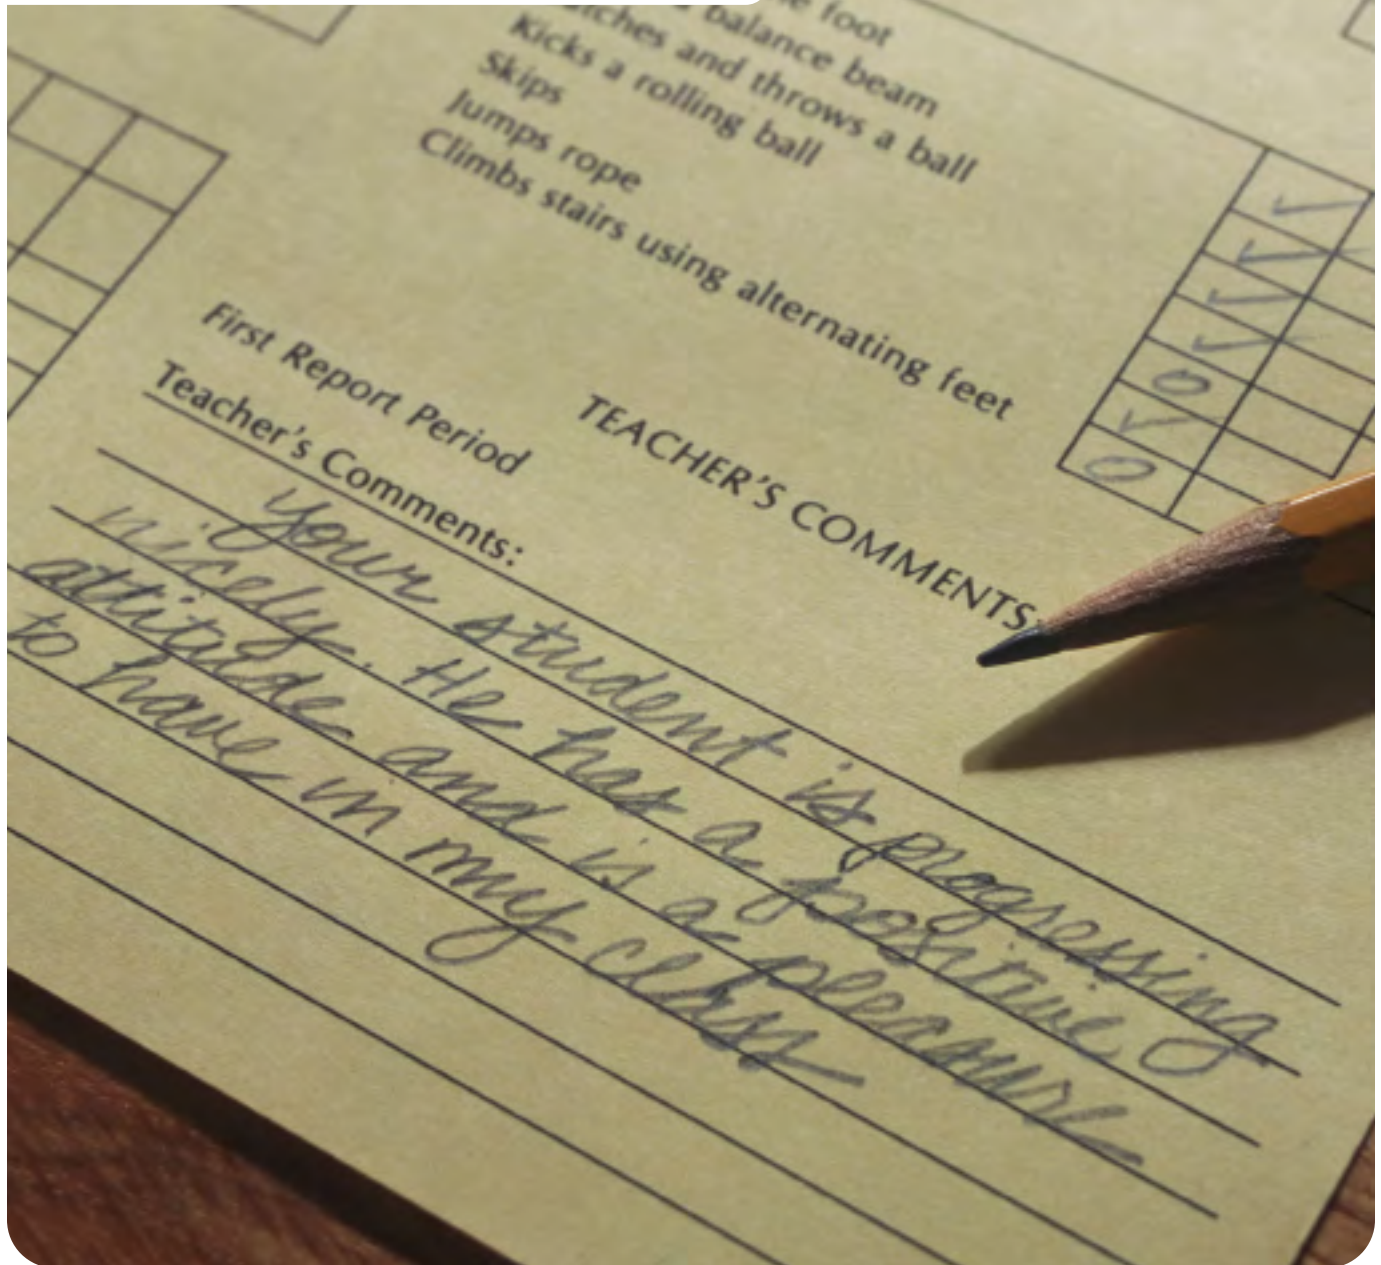 foot
balance beam
and throws a ball
Kicks a rolling ball
Skips
Jumps rope
Climbs stairs using alternating feet
TEACHER'S COMMENTS:
First Report Period
Teacher's Comments:
Your student is progressing
nicely. He has a positive
attitude and is a pleasure
to have in my class